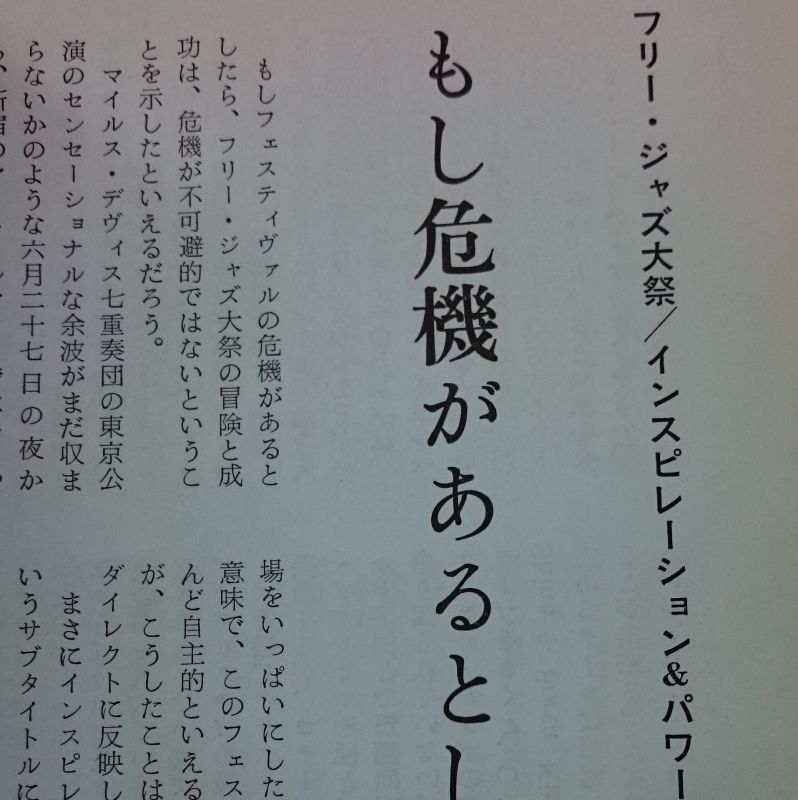 フリー・ジャズ大祭／インスピレーション&パワー
もし危機があるとし
もしフェスティヴァルの危機があると
したら、フリー・ジャズ大祭の冒険と成
功は、危機が不可避的ではないというこ
とを示したといえるだろう。
マイルス・デヴィス七重奏団の東京公
演のセンセーショナルな余波がまだ収ま
らないかのような六月二十七日の夜か
場をいっぱいにした
意味で、このフェス
んど自主的といえる
が、こうしたことは
ダイレクトに反映し
まさにインスピレ
いうサブタイトルに